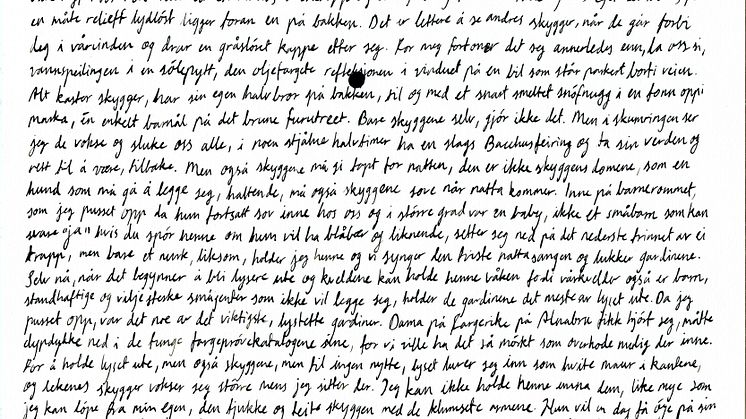 en måte relieft lydløst ligger foran en på bakken. Det er lettere å se andres skygger, når de går forbi
deg i vårvinden og drar en gråsløret kappe etter seg. For meg fortoner det seg annerledes enn, da oss si,
vannspeilingen i en sølepytt, den oljefargete refleksjonen i vinduet på en bil som står parkert borti veien.
Alt kaster skygger, har sin egen halvbror på bakken, til og med et snart smeltet snøfnugg i en fonn oppi
marka, én enkelt barnål på det brune furutreet. Bare skyggene selv, gjør ikke det. Men i skumringen ser
jeg de vokse og sluke oss alle, i noen stjålne halvtimer har en slags Bacchusfeiring og ta sin verden og
rett til å være, tilbake. Men også skyggene må gi tapt for natten, den er ikke skyggens domene, som en
hund som må gå å legge seg, haltende, må også skyggene sove når natta kommer. Inne på barnerommet,
som jeg pusset opp da hun fortsatt sov inne hos oss og i større grad var en baby, ikke et småbarn som kan
svare "ja" hvis du spør henne om hun vil ha blåbær og liknende, setter seg ned på det nederste trinnet av ei
trapp, men bare et nurk, liksom, holder jeg henne og vi synger den triste nattasangen og lukker gardinene.
Selv nå, når det begynner å bli lysere ute og kveldene kan holde henne våken fordi vårkvelder også er barn,
standhaftige og viljesterke småjenter som ikke vil legge seg, holder de gardinene det meste av lyset ute. Da jeg
pusset opp, var det noe av det viktigste, lystette gardiner. Dama på Fargerike på Alnabru fikk hjort seg, måtte
dypdykke ned i de tunge fargeprøvekatalogene sine, for vi ville ha det så mørkt som overhode mulig der inne.
For å holde lyset ute, men også skyggene, men til ingen nytte, lyset lurer seg inn som hvite maur i kantene,
og dekenes skygger vokser seg større mens jeg sitter der. Jeg kan ikke holde henne unna dem, like mye som
jeg kan løpe fra min egen, den tjukke og teite skyggen med de klumsete armene. Hun vil en dag få øye på sin